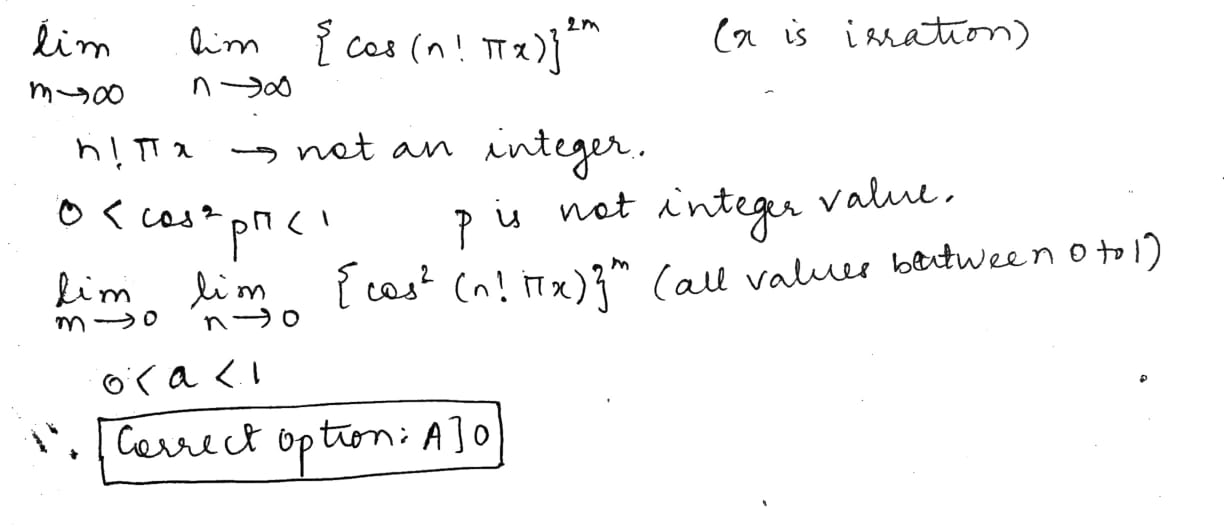 lim lim { cos (n! πx)}^2m (x is irration)
m→∞ n→∞
n! πx → not an integer.
0 < cos² pπ < 1 p is not integer value.
lim lim { cos² (n! πx)}^m (all values between 0 to 1)
m→0 n→0
0 < a < 1
∴ Correct option: A] 0